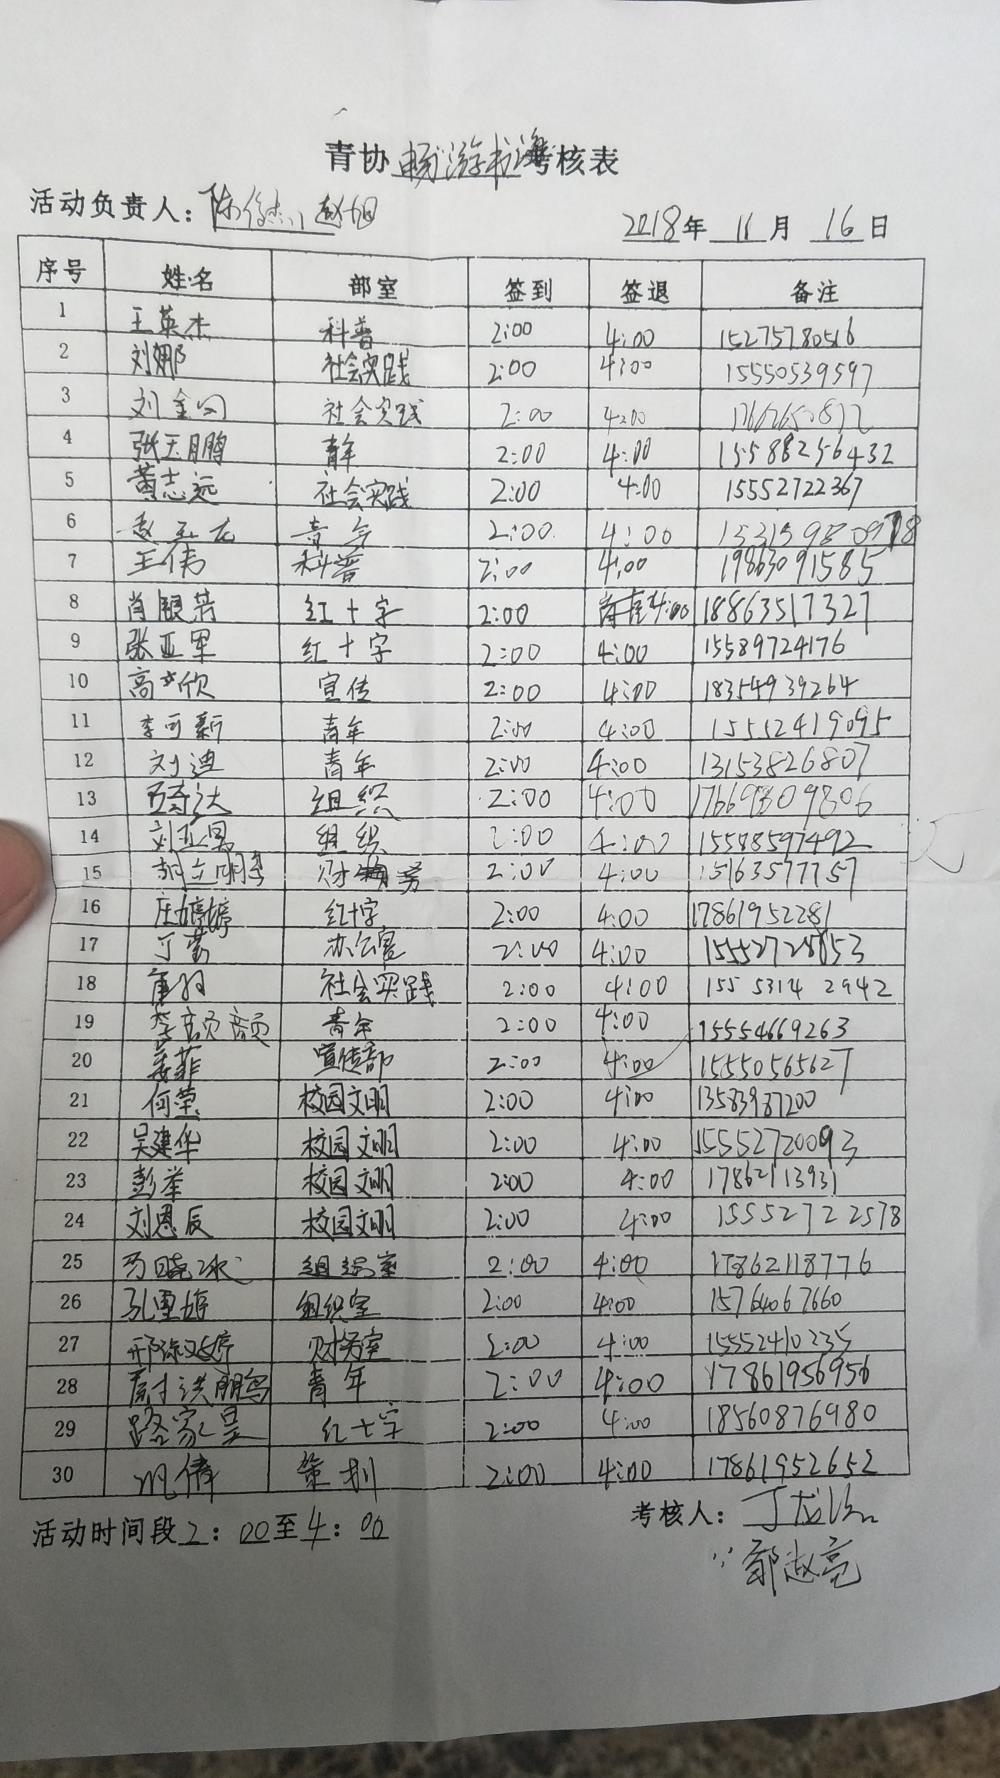 青协畅游书海考核表
活动负责人：陈俊杰 赵旭
2018年 11月 16日
序号 姓名 部室 签到 签退 备注
1 王英杰 科普 2:00 4:00 15275780516
2 刘娜 社会实践 2:00 4:00 15550539597
3 刘金 社会实践 2:00 4:00
4 张玉鹏 青年 2:00 4:00 15588256432
5 黄志远 社会实践 2:00 4:00 15552722367
6 2:00 4:00
7 王伟 科普 2:00 4:00 19863091585
8 肖 红十字 2:00 4:00 18863517327
9 张亚军 红十字 2:00 4:00 15589724176
10 高文欣 宣传 2:00 4:00 18354939264
11 李可新 青年 2:00 4:00 15552419095
12 刘迪 青年 2:00 4:00 13153826807
13 组织 2:00 4:00 17669809806
14 刘亚男 组织 2:00 4:00 15588597492
15 胡立明 财务 2:00 4:00 15163577757
16 庄婷婷 红十字 2:00 4:00 17861952281
17 丁蒙 办公室 2:00 4:00
18 社会实践 2:00 4:00 155 5314 2942
19 李颜颜 青年 2:00 4:00 15554669263
20 姜菲 宣传部 2:00 4:00 15550565627
21 何莹 校园文明 2:00 4:00 13583987200
22 吴建华 校园文明 2:00 4:00 15552720093
23 彭举 校园文明 2:00 4:00 17862113931
24 刘恩辰 校园文明 2:00 4:00 15552722578
25 马晓冰 组织室 2:00 4:00 17862118776
26 孔 组织室 2:00 4:00 15764067660
27 邢 财务室 2:00 4:00 15552410235
28 青年 2:00 4:00 17861956956
29 路家昊 红十字 2:00 4:00 18560876980
30 倩 策划 2:00 4:00 17861952652
活动时间段2：00至4：00
考核人：丁龙
郭赵亮